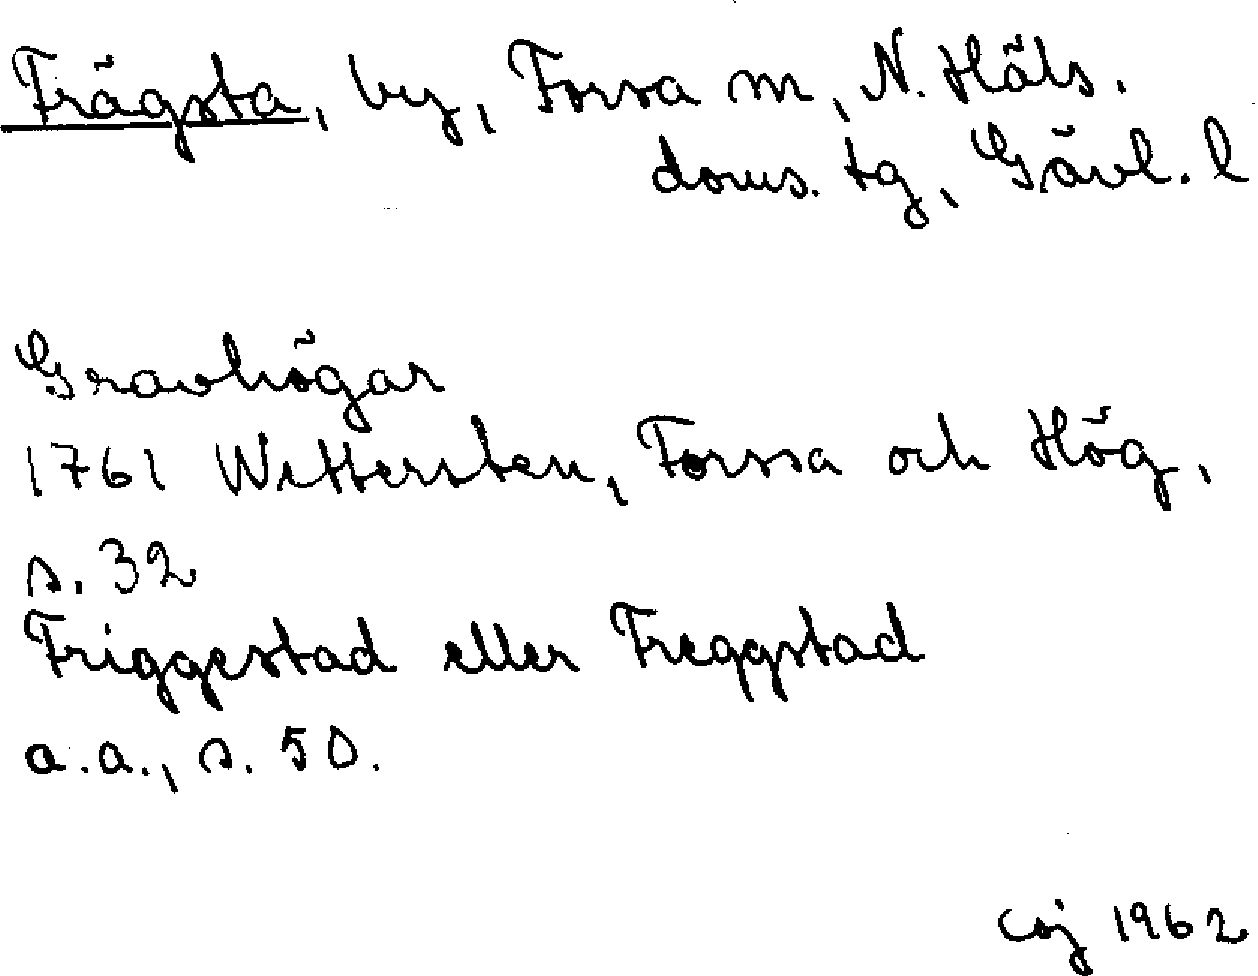 Frägsta, by, Forsa sn, N. Häls.
doms. tg, Gävl. l
Gravhögar
1761 Wittersten, Forssa och Hög,
s. 32
Friggestad eller Freggstad
a.a., s. 50.
csj 1962